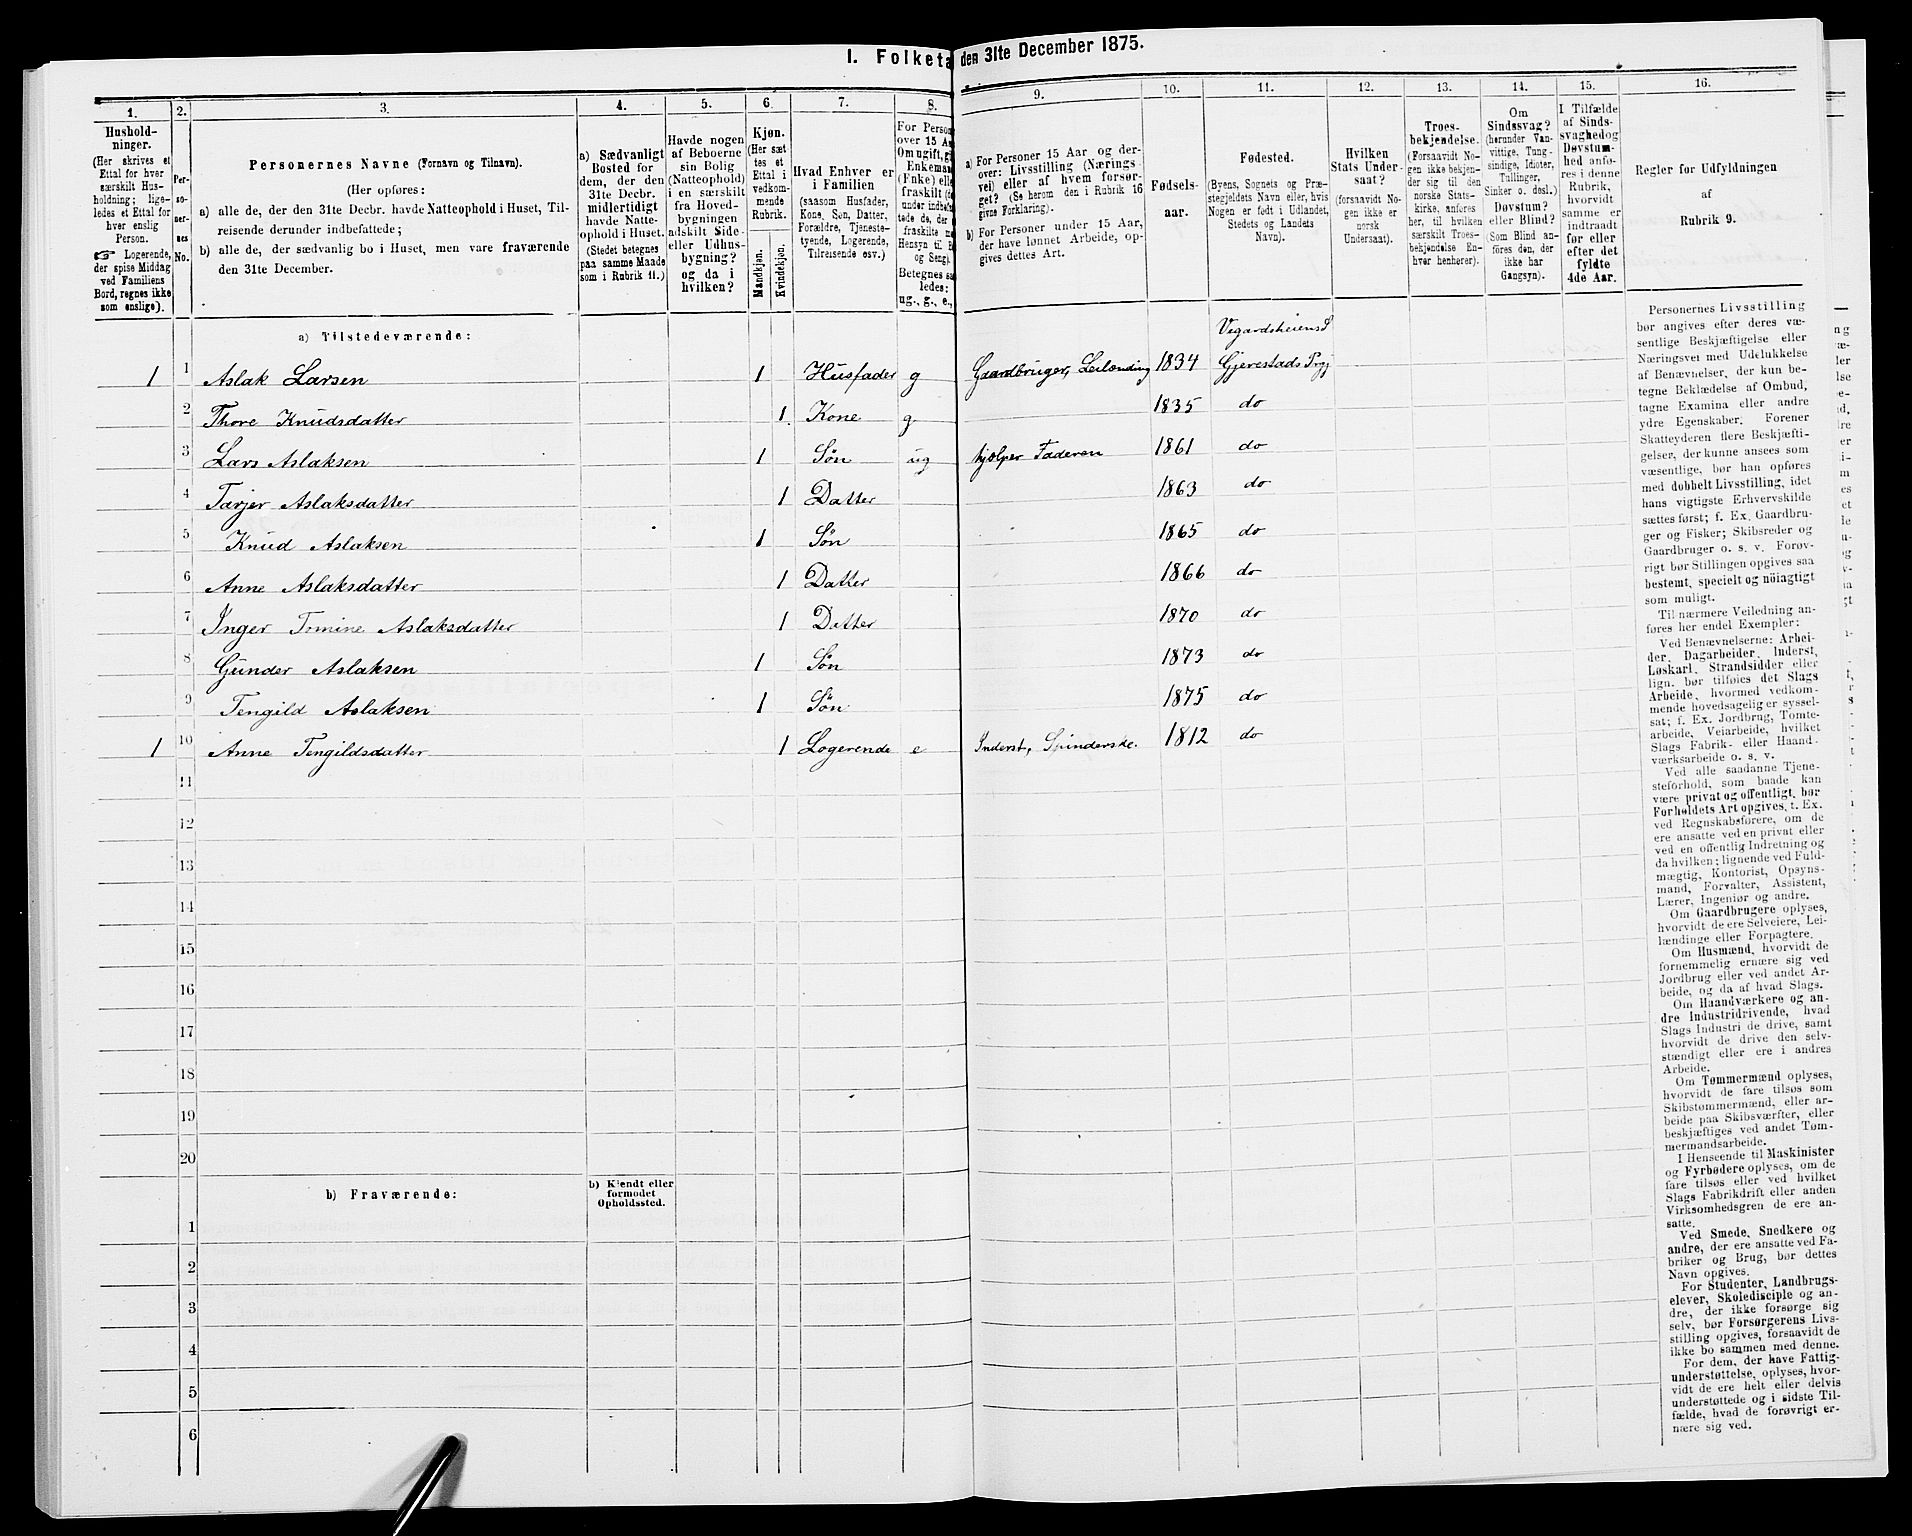 I. Folketæ den 31te December 1875.
1. 2. 3. 4. 5. 6. 7. 8. 9. 10. 11. 12. 13. 14. 15. 16.
Hushold-
ninger.
(Her skrives et
Ettal for hver
særskilt Hus-
holdning; lige-
ledes et Ettal for
hver enslig
Person.
☞ Logerende,
der spise Middag
ved Familiens
Bord, regnes ikke
som enslige).
Per-
so-
ner-
nes
No.
Personernes Navne (Fornavn og Tilnavn).
(Her opføres:
a) alle de, der den 31te Decbr. havde Natteophold i Huset, Til-
reisende derunder indbefattede;
b) alle de, der sædvanlig bo i Huset, men vare fraværende
den 31te December.
a) Sædvanligt
Bosted for
dem, der den
31te Decbr.
midlertidigt
havde Natte-
ophold i Huset.
(Stedet betegnes
paa samme Maade
som i Rubrik 11.)
Havde nogen
af Beboerne
sin Bolig
(Natteophold)
i en særskilt
fra Hoved-
bygningen
adskilt Side-
eller Udhus-
bygning?
og da i
hvilken?
Kjøn.
(Her sæt-
tes et
Ettal i
vedkom-
mende
Rubrik.
Mandkjøn.
Kvindekjøn.
Hvad Enhver er
i Familien
(saasom Husfader,
Kone, Søn, Datter,
Forældre, Tjeneste-
tyende, Logerende,
Tilreisende osv.)
For Person
over 15 Aa
Om ugift, gi
Enkeman
(Enke) elle
fraskilt (s
under indbe
tede de, der
fraskilte m
Hensyn til B
og Seng).
Betegnes sa
ledes:
ug., g., e.,
a) For Personer 15 Aar og der-
over: Livsstilling (Nærings-
vei) eller af hvem forsør-
get? (Se herom den i Rubrik 16
givne Forklaring).
b) For Personer under 15 Aar,
der have lønnet Arbeide, op-
gives dettes Art.
Fødsels-
aar.
Fødested.
(Byens, Sognets og Præ-
stegjeldets Navn eller, hvis
Nogen er født i Udlandet,
Stedets og Landets
Navn).
Hvilken
Stats Under-
saat?
(forsaavidt No-
gen ikke er
norsk
Undersaat).
Troes-
bekjendelse.
(Forsaavidt No-
gen ikke bekjen-
der sig til den
norske Stats-
kirke, anføres
her, til hvilken
særskilt Troes-
bekjendelse En-
hver henhører).
Om
Sindssvag?
(herunder Van-
vittige, Tung-
sindige, Idioter,
Tullinger,
Sinker o. desl.)
Døvstum?
eller Blind?
(Som Blind an-
føres den, der
ikke har
Gangsyn).
I Tilfælde
af Sinds-
svaghed og
Døvstum-
hed anfø-
res i denne
Rubrik,
hvorvidt
samme er
indtraadt
før eller
efter det
fyldte
4de Aar.
Regler for Udfyldningen
af
Rubrik 9.
a) Tilstedeværende:
Vegardsheiens S
1 1 Aslak Larsen 1 Husfader g Gaardbruger, Leilænding 1834 Gjerestads Prgj
2 Thore Knudsdatter 1 Kone g 1835 do
3 Lars Aslaksen 1 Søn ug hjælper Faderen 1861 do
4 Tarjer Aslaksdatter 1 Datter 1863 do
5 Knud Aslaksen 1 Søn 1865 do
6 Anne Aslaksdatter 1 Datter 1866 do
7 Inger Tomine Aslaksdatter 1 Datter 1870 do
8 Gunder Aslaksen 1 Søn 1873 do
9 Tengild Aslaksen 1 Søn 1875 do
1 10 Anne Tengildsdatter 1 Logerende e Inderst, Spinderske. 1812 do
11
12
13
14
15
16
17
18
19
20
b) Fraværende:
b) Kjendt eller
formodet
Opholdssted.
1
2
3
4
5
6
Personernes Livsstilling
bør angives efter deres væ-
sentlige Beskjæftigelse eller
Næringsvei med Udelukkelse
af Benævnelser, der kun be-
tegne Beklædelse af Ombud,
tagne Examina eller andre
ydre Egenskaber. Forener
Skatteyderen flere Beskjæfti-
gelser, der kunne ansees som
væsentlige, bør han opføres
med dobbelt Livsstilling, idet
hans vigtigste Erhvervskilde
sættes først; f. Ex. Gaardbru-
ger og Fisker; Skibsreder og
Gaardbruger o. s. v. Forøv-
rigt bør Stillingen opgives saa
bestemt, specielt og nöiagtigt
som muligt.
Til nærmere Veiledning an-
føres her endel Exempler:
Ved Benævnelserne: Arbei-
der, Dagarbeider, Inderst,
Løskarl, Strandsidder eller
lign. bør tilføies det Slags
Arbeide, hvormed vedkom-
mende hovedsagelig er syssel-
sat; f. Ex. Jordbrug, Tomte-
arbeide, Veiarbeide, hvilket
Slags Fabrik- eller Haand-
værksarbeide o. s. v.
Ved alle saadanne Tjene-
steforhold, som baade kan
være privat og offentligt, bør
Forholdets Art opgives, t. Ex.
ved Regnskabsførere, om de
ere ansatte ved en privat eller
ved en offentlig Indretning og
da hvilken; lignende ved Fuld-
mægtig, Kontorist, Opsyns-
mand, Forvalter, Assistent,
Lærer, Ingeniør og andre.
Om Gaardbrugere oplyses,
hvorvidt de ere Selveiere, Lei-
lændinge eller Forpagtere.
Om Husmænd, hvorvidt de
fornemmelig ernære sig ved
Jordbrug eller ved andet Ar-
beide, og da af hvad Slags.
Om Haandværkere og an-
dre Industridrivende, hvad
Slags Industri de drive, samt
hvorvidt de drive den selv-
stændigt eller ere i andres
Arbeide.
Om Tømmermænd oplyses,
hvorvidt de fare tilsøs som
Skibstømmermænd, eller ar-
beide paa Skibsværfter, eller
beskjæftiges ved andet Tøm-
mermandsarbeide.
I Henseende til Maskinister
og Fyrbødere oplyses, om de
fare tilsøs eller ved hvilket
Slags Fabrikdrift eller anden
Virksomhedsgren de ere an-
satte.
Ved Smede, Snedkere og
andre, der ere ansatte ved Fa-
briker og Brug, bør dettes
Navn opgives.
For Studenter, Landbrugs-
elever, Skoledisciple og an-
dre, der ikke forsørge sig
selv, bør Forsørgerens Livs-
stilling opgives, forsaavidt de
ikke bo sammen med denne.
For dem, der have Fattig-
understøttelse, oplyses, hvor-
vidt de ere helt eller delvis
understøttede og i sidste Til-
fælde, hvad de forøvrigt er-
nære sig ved.